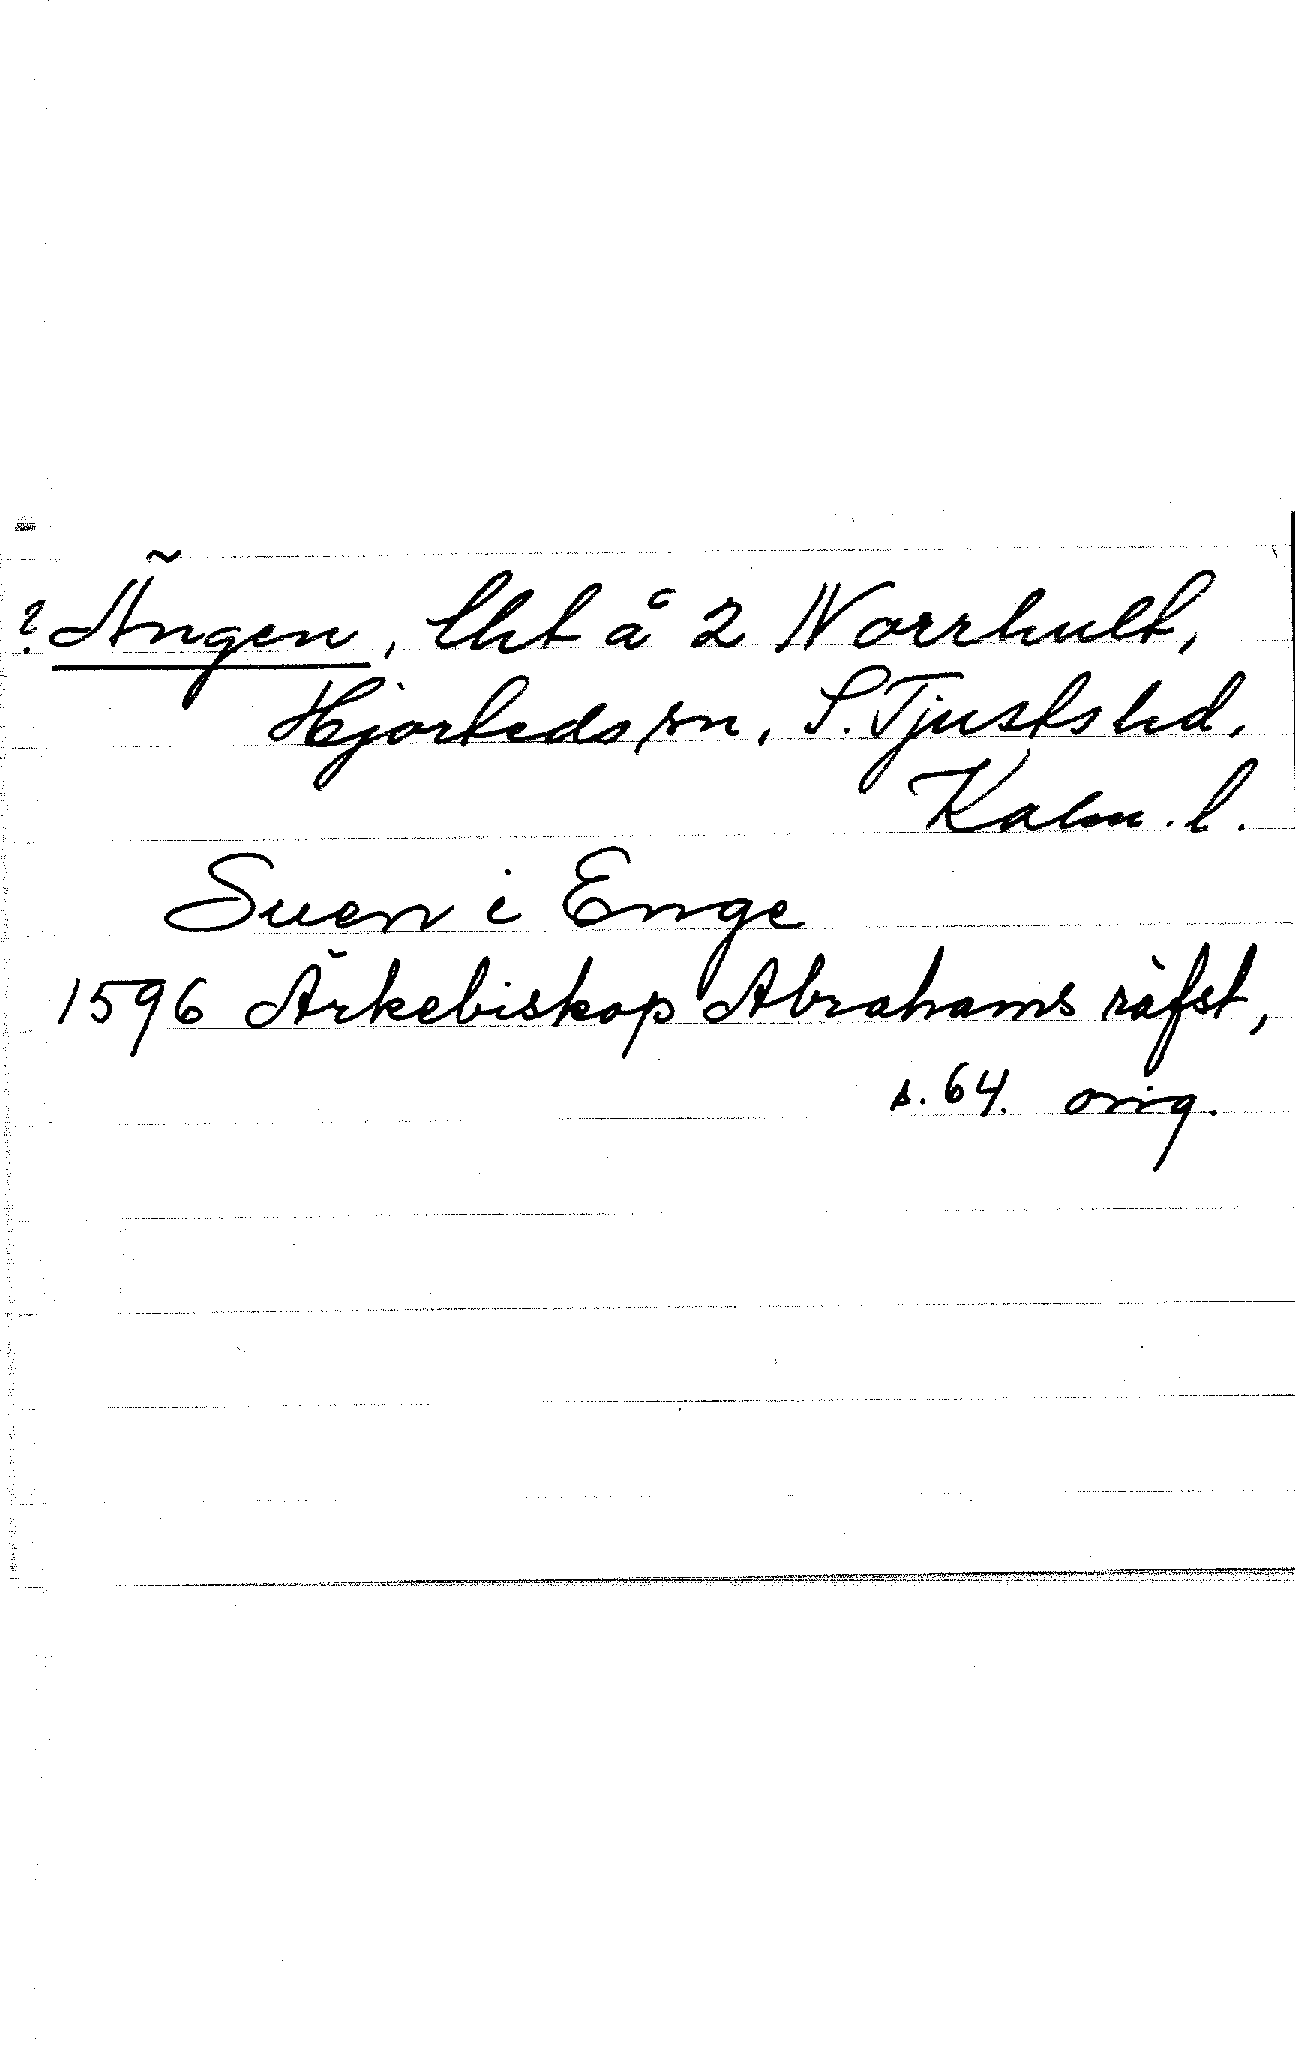 ? Ängen, lht å 2 Norrhult,
Hjorteds sn, S. Tjusts hd,
Kalm. l.
Suen i Enge
1596 Ärkebiskop Abrahams räfst,
s. 64. orig.